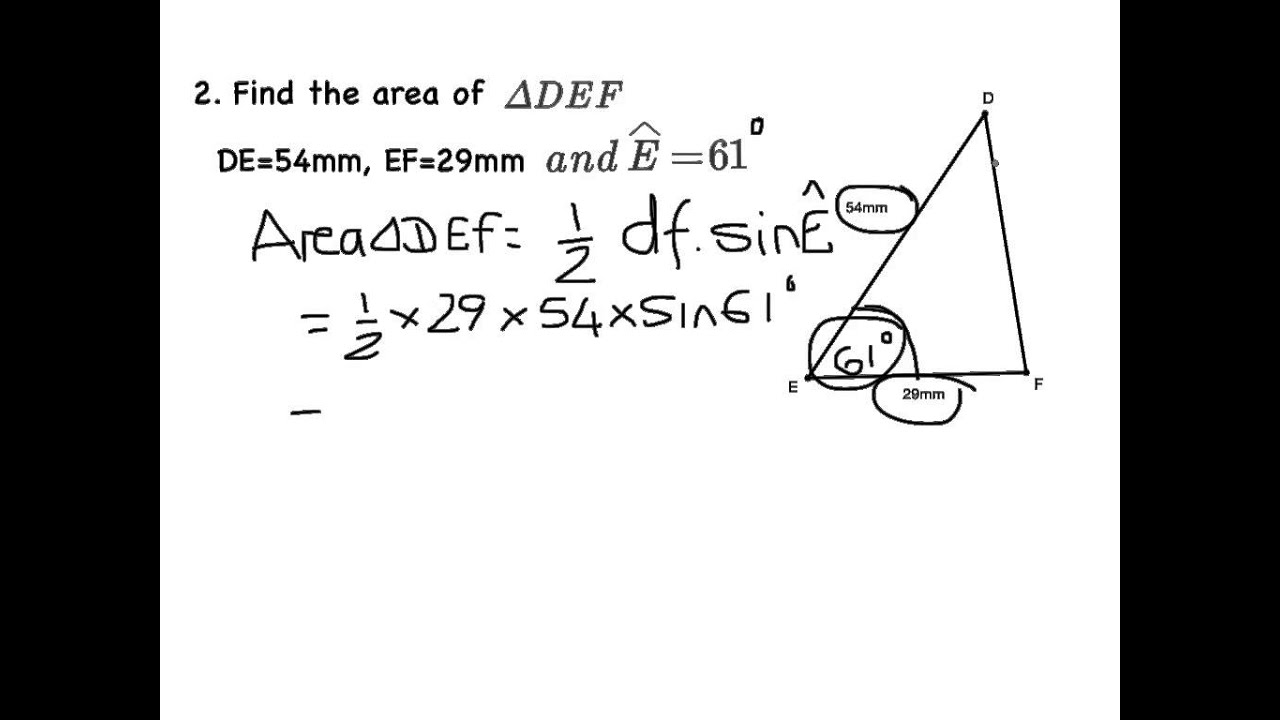 2. Find the area of ΔDEF
DE=54mm, EF=29mm and Ê=61°
AreaΔDEF= 1/2 df.sinÊ
= 1/2 × 29 × 54 × sin61°
D
54mm
61°
E
29mm
F